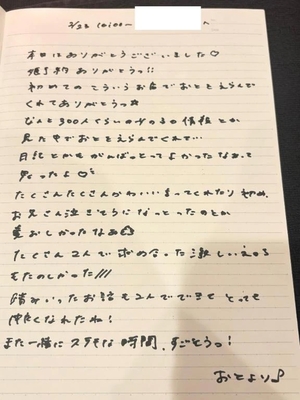 2/23 10:00-
本日はありがとうございました♡
姫予約ありがとうっ!!
初めてのこういうお店でおとをえらんで
くれてありがとうっ
なんと300人くらいの女の子の情報とか
見た中でおとをえらんでくれて…
日記とかもがんばっとってよかったなぁって
思ったよ♡
たくさんたくさんかわいいまってくれたり
お兄さん泣きそうになっとったのとか
愛おしかったなぁ
たくさん2人で求め合った激しいえっちも
もたのしかった///
踏みいったお話も2人でできてとっても
仲良くなれたね!
また一緒にステキな時間、すごそうっ!
おとより♪